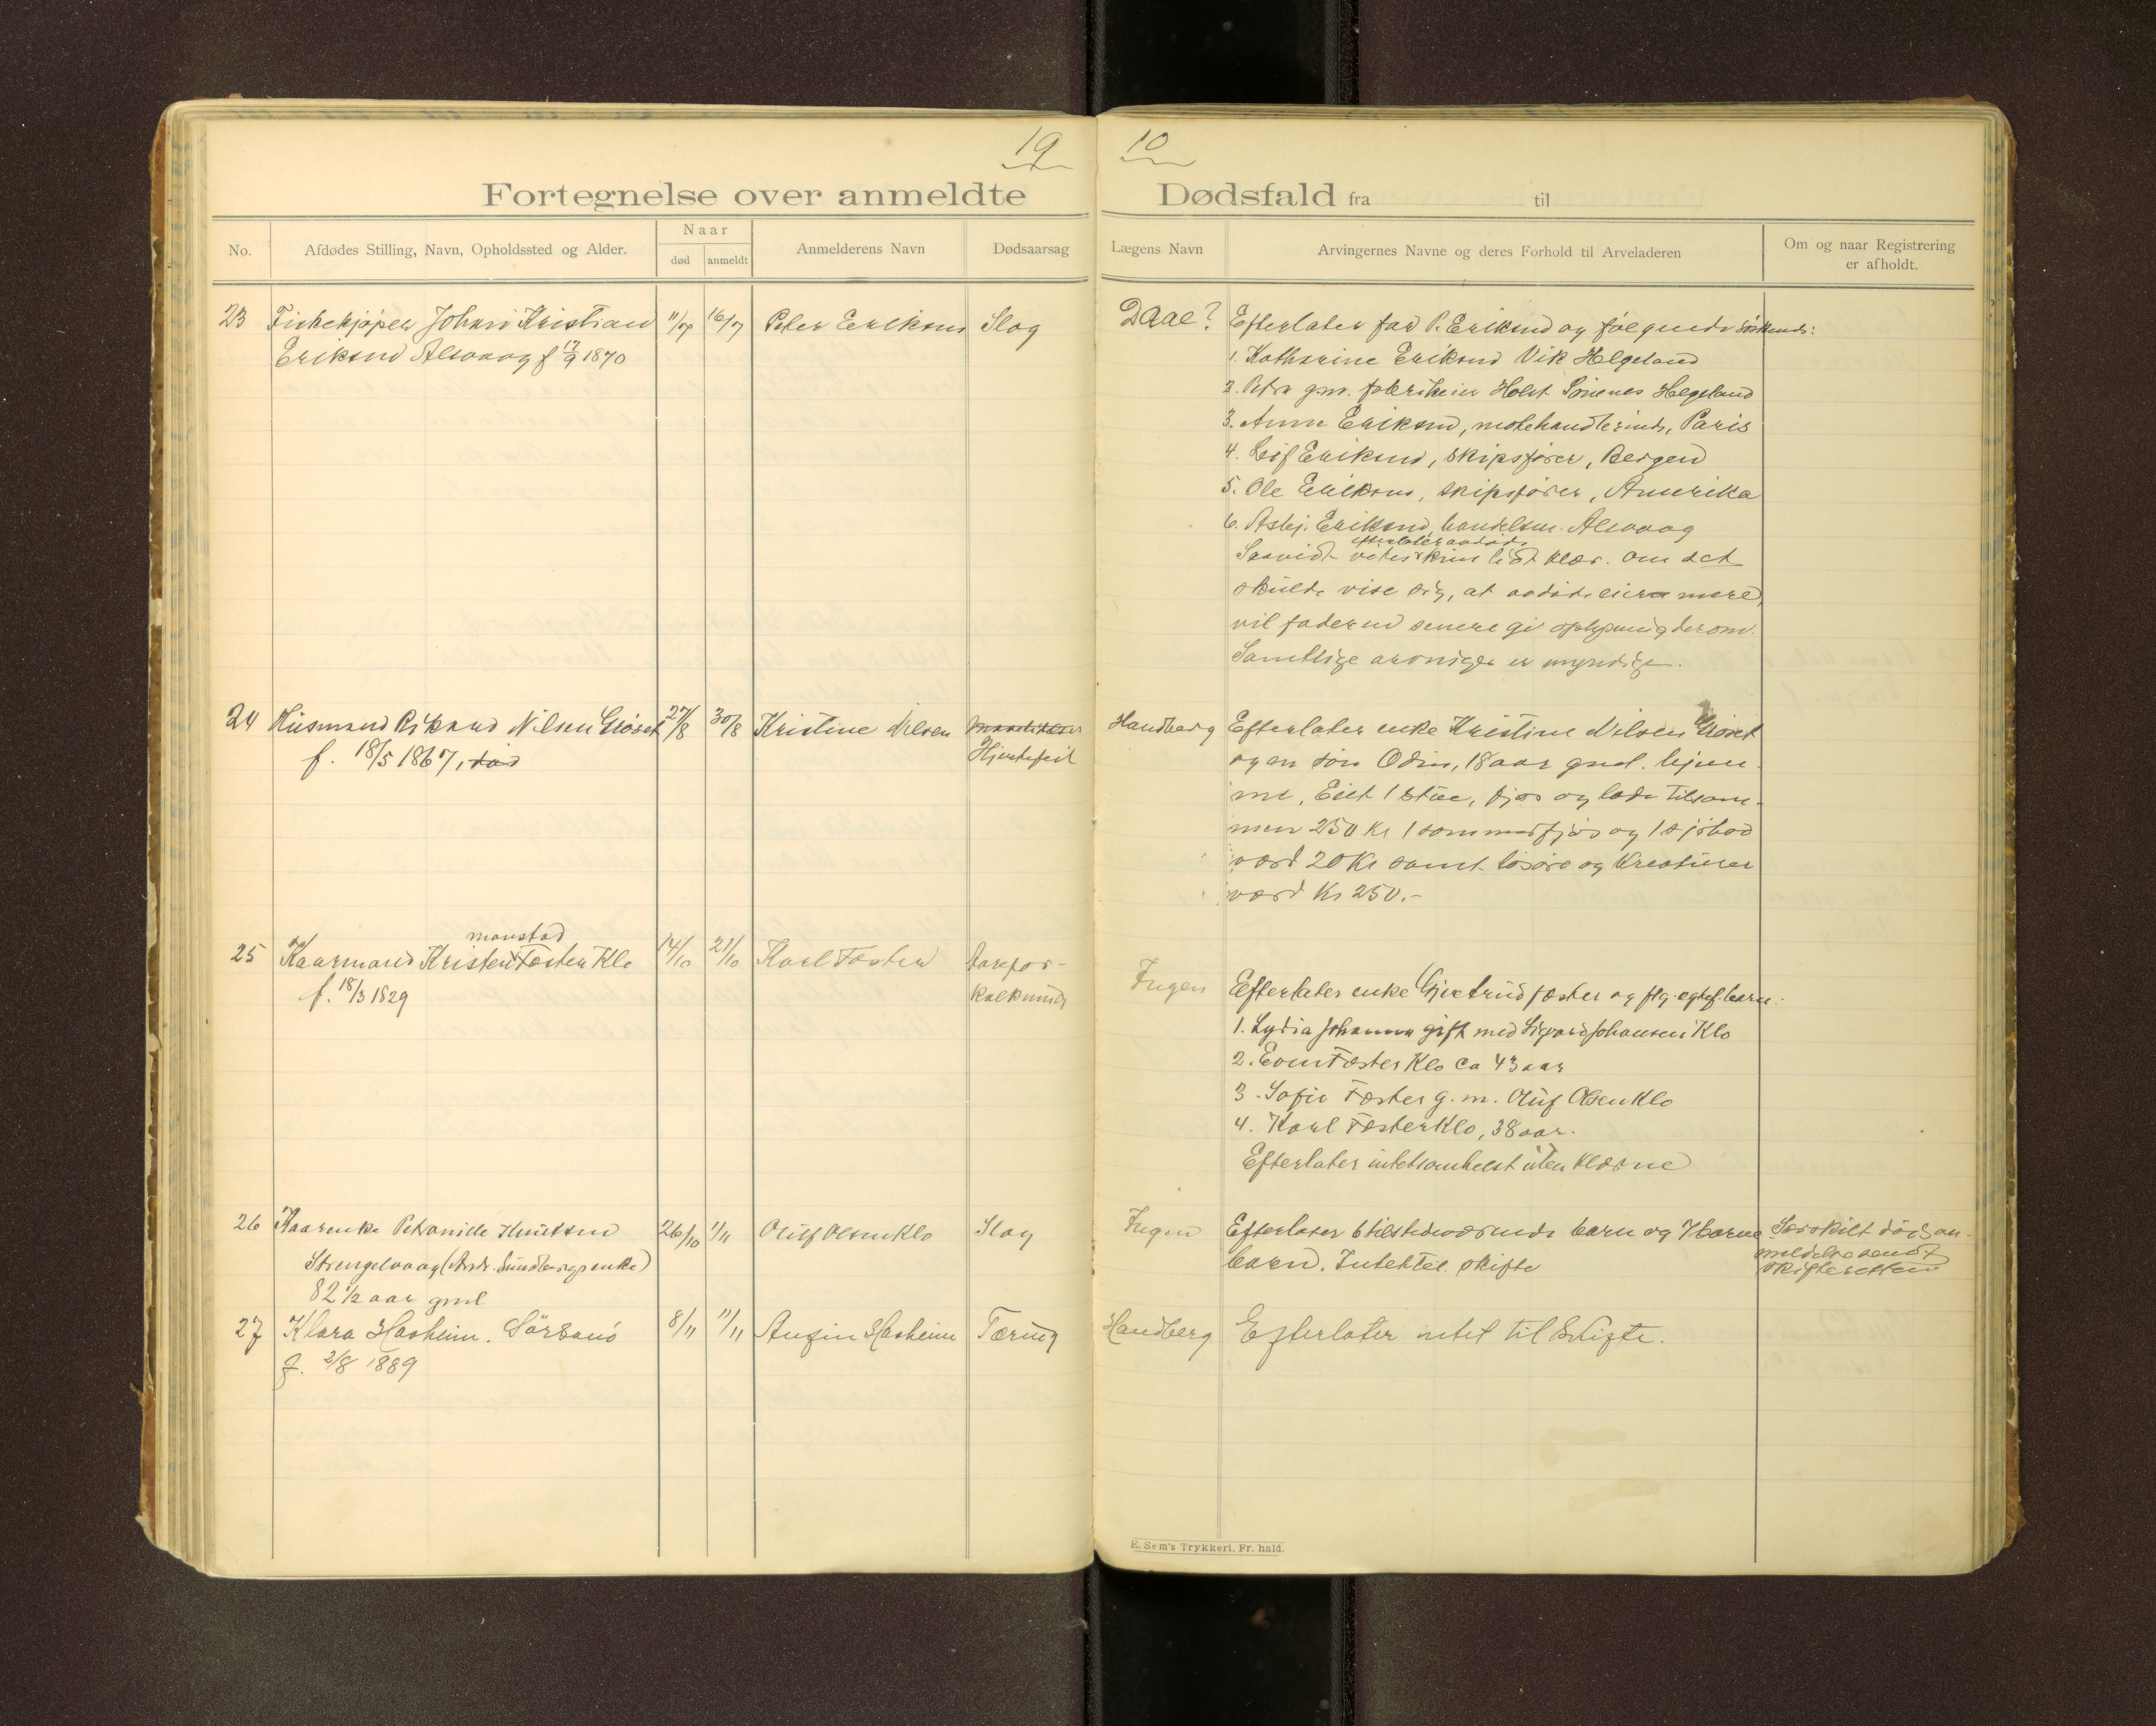 19 10
Fortegnelse over anmeldte Dødsfald fra til
No.
Afdødes Stilling, Navn, Opholdssted og Alder.
Naar
død
anmeldt
Anmelderens Navn
Dødsaarsag
Lægens Navn
Arvingernes Navne og deres Forhold til Arveladeren
Om og naar Registrering
er afholdt.
23 Fiskekjøper Johan Kristian 11/7 16/7 Peter Eriksen Slag Daae? Efterlater far P. Eriksen og følgende søskende:
Eriksen Alsvaag f 17/9 1870
1. Katharine Eriksen Vik Helgeland
2. Petra gm. Holst Helgeland
3. Anna Eriksen, motehandlerinde, Paris
4. Leif Eriksen, skipsfører, Bergen
5. Ole Eriksen, skipsfører, Amerika
6. Asbj. Eriksen, handelsm. Alsvaag
efterlater avdøde
Saavidt vites kun litt klær. Om det
skulde vise sig, at avdøde eier mere,
vil faderen senere gi oplysning derom.
Samtlige arvinger er myndige.
24 Husmand Rikard Nilsen Grøset 27/8 30/8 Kristine Nilsen Handberg Efterlater enke Kristine Nilsen Grøset
f. 18/5 1867, død
Hjertefeil
og en søn Odin, 18 aar gml. hjem-
me. Eiet 1 stue, fjøs og lade tilsam-
men 250 kr 1 sommerfjøs og 1 sjøbod
værd 20 kr samt løsøre og kreaturer
værd kr 250.-
monstad
25 Kaarmand Kristen Fæster Klo 14/10 21/10 Karl Fæster Aarefor-
kalkning
f. 18/3 1829
Ingen Efterlater enke Gjertrud Fæster og flg. egtef. barn:
1. Lydia Johanna gift med Sigvard Johansen Klo
2. Even Fæster Klo ca 43 aar
3. Sofie Fæster g. m. Oluf Olsen Klo
4. Karl Fæster Klo, 38 aar.
Efterlater intetsomhelst uten klærne
26 Kaarenke Petronille Knutsen 26/10 1/11 Oluf Olsen Klo Slag Ingen Efterlater 6 tilstedeværende barn og 7 barne Særskilt dødsan-
Strengelvaag (Andr. Sundbergs enke) barn. Intet til skifte meldelse sendt
skifteretten
82 1/2 aar gml
27 Klara Hasheim. Sørsand 8/11 11/11 Hasheim Tæring Handberg Efterlater intet til skifte.
f. 2/8 1889
E. Sem's Trykkeri, Fr. hald.